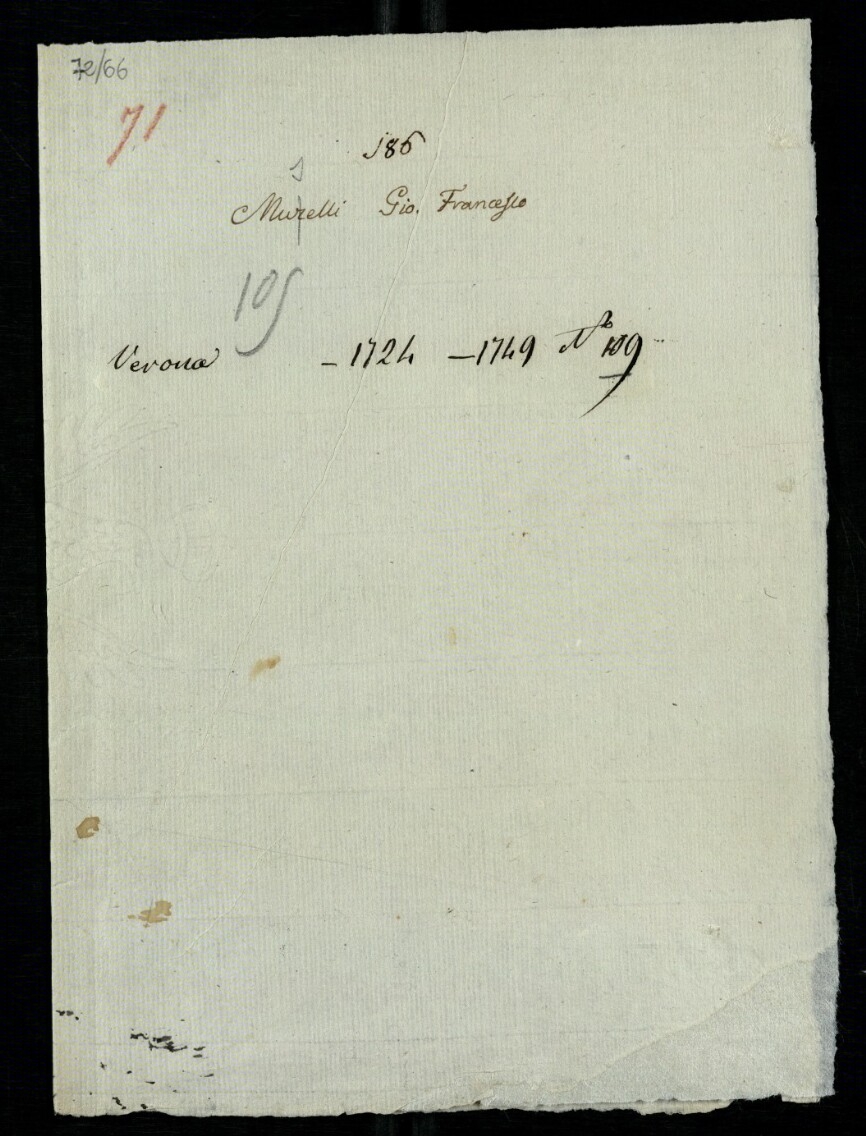 72/66
71
186
Murelli Gio. Francesco
109
Verona - 1724 - 1749 No 109